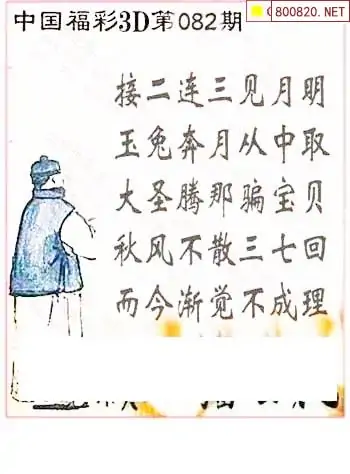 800820.NET
中国福彩3D第082期
接二连三见月明
玉兔奔月从中取
大圣腾那骗宝贝
秋风不散三七回
而今渐觉不成理